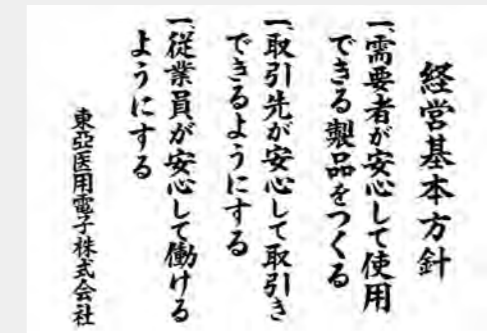 経営基本方針
一、需要者が安心して使用
できる製品をつくる
一、取引先が安心して取引き
できるようにする
一、従業員が安心して働ける
ようにする
東亞医用電子株式会社